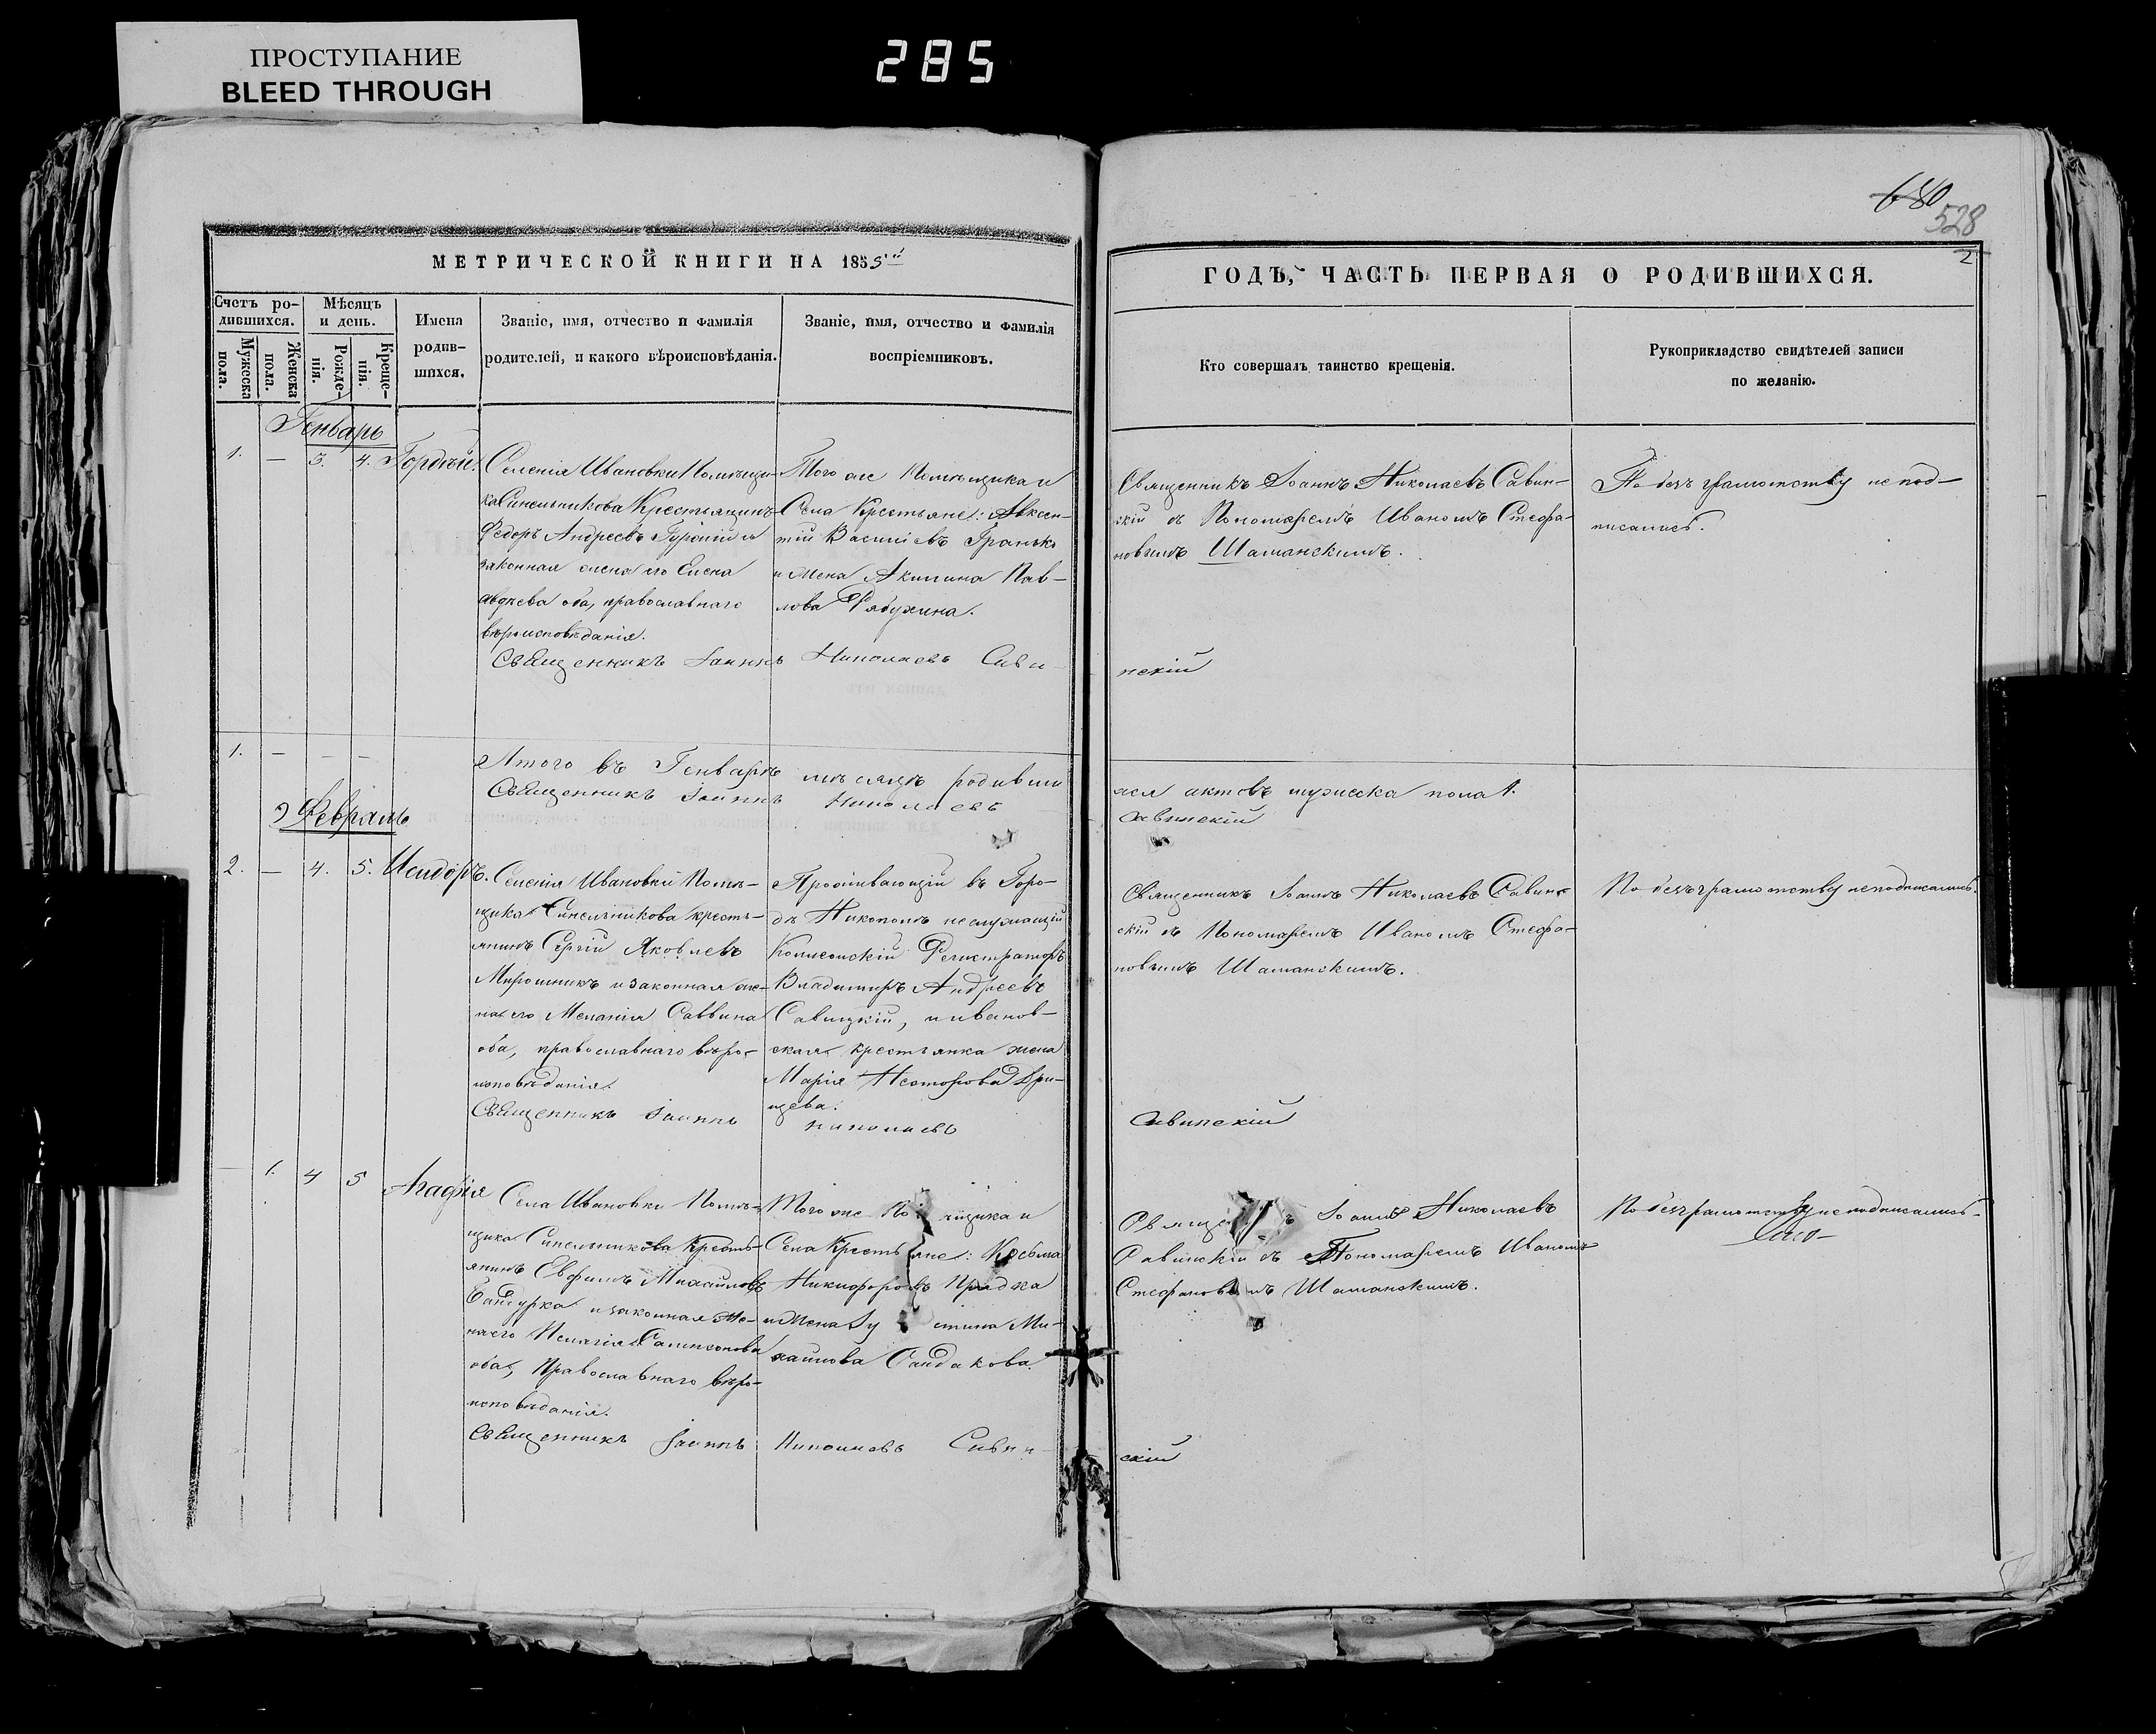 ПРОСТУПАНИЕ
BLEED THROUGH
285
680
528
2
МЕТРИЧЕСКОЙ КНИГИ НА 1855й
ГОДЪ, ЧАСТЬ ПЕРВАЯ О РОДИВШИХСЯ.
Счетъ ро-
дившихся.
Мужеска
пола.
Женска
пола.
Мѣсяцъ
и день.
Рожде-
нія.
Креще-
нія.
Имена
родив-
шихся.
Званіе, имя, отчество и фамилія
родителей, и какого вѣроисповѣданія.
Званіе, имя, отчество и фамилія
воспріемниковъ.
Кто совершалъ таинство крещенія.
Рукоприкладство свидѣтелей записи
по желанію.
Генварь
1. — 3. 4. Гордѣй.
Селенія Ивановки Помѣщи-
ка Синельникова Крестьянинъ
Федоръ Андреевъ и
законная жена его Елена
оба, православнаго
вѣроисповѣданія.
Того же Помѣщика и
Села Крестьяне: Авксен-
тій Василіевъ Гранько
и жена Акилина Пав-
лова Рябухина.
Священникъ Іоаннъ Николаевъ Савин-
скій съ Пономаремъ Иваномъ Стефа-
новымъ Шаманскимъ.
По безъграмотству не под-
писались.
Священникъ Іоаннъ Николаевъ Сави-
нскій
1. — — —
Итого въ Генварѣ мѣсяцѣ родивши
хся актовъ мужеска пола 1.
Священникъ Іоаннъ Николаевъ
Савинскій
Февраль
2. — 4. 5. Исидоръ.
Селенія Ивановки Помѣ-
щика Синельникова кресть-
янинъ Сергій Яковлевъ
Мирошникъ и законная же-
на его Меланія Саввина
оба, православнаго вѣро-
исповѣданія.
Проживающій въ Горо-
дѣ Никополѣ неслужащій
Колежскій Регистраторъ
Владимиръ Андреевъ
Савицкій, и иванов-
ская крестьянка жена
Марія Несторова Гри-
цева.
Священникъ Іоаннъ Николаевъ Савин-
скій съ Пономаремъ Иваномъ Стефа-
новымъ Шаманскимъ.
По безъграмотству неподписались.
Священникъ Іоаннъ Николаевъ
Савинскій
— 1. 4 5 Агафія
Села Ивановки Помѣ-
щика Синельникова Кресть-
янинъ Евфимъ Михайловъ
и законная же-
на его Пелагія Сампсонова
оба, Православнаго вѣро-
исповѣданія.
Того же щика и
Села Крестьяне: Косьма
Никифоровъ Прядка
и жена стина Ми-
хайлова Сандакова.
Іоаннъ Николаевъ
Савинскій съ Пономаремъ Иваномъ
Стефановымъ Шаманскимъ.
По безграмотству неподписались-
Священникъ Іоаннъ Николаевъ Савин-
скій